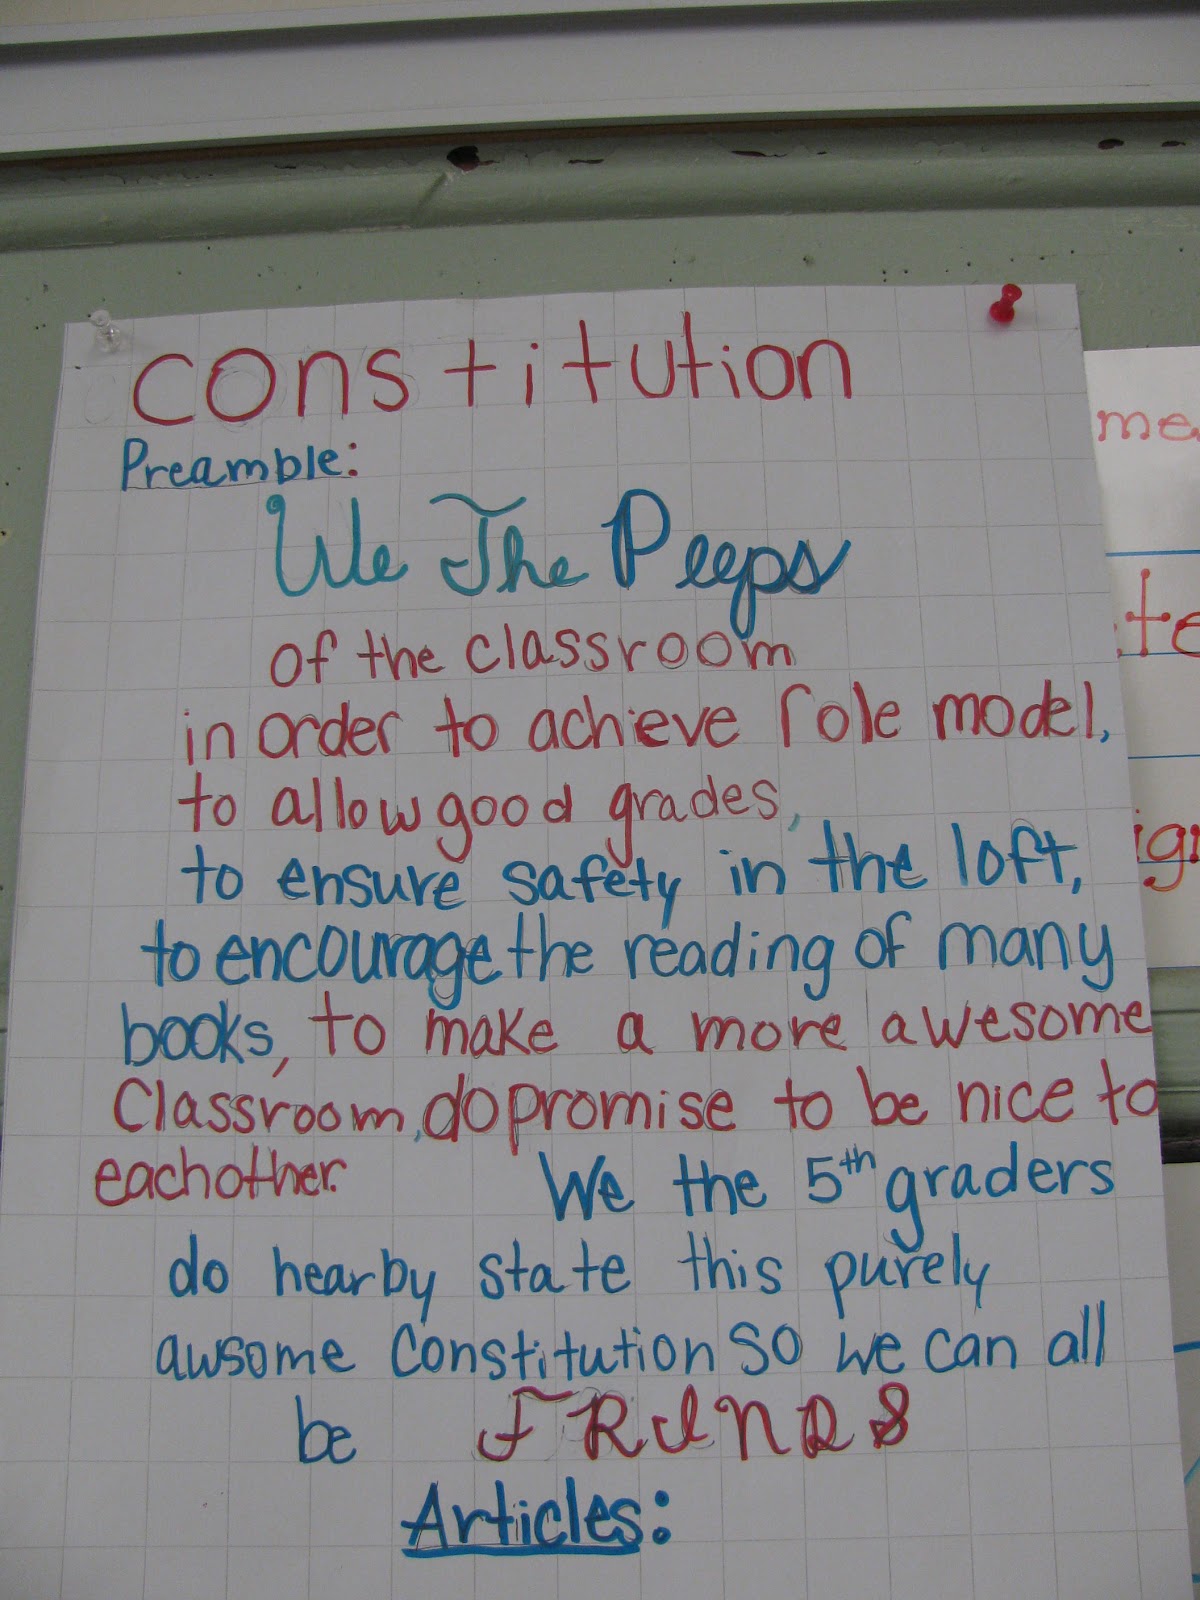 constitution
Preamble:
We The Peeps
of the classroom
in order to achieve role model,
to allow good grades,
to ensure safety in the loft,
to encourage the reading of many
books, to make a more awesome
Classroom, do promise to be nice to
eachother. We the 5th graders
do hearby state this purely
awsome constitution so we can all
be FRINDS
Articles:
me
te
ig